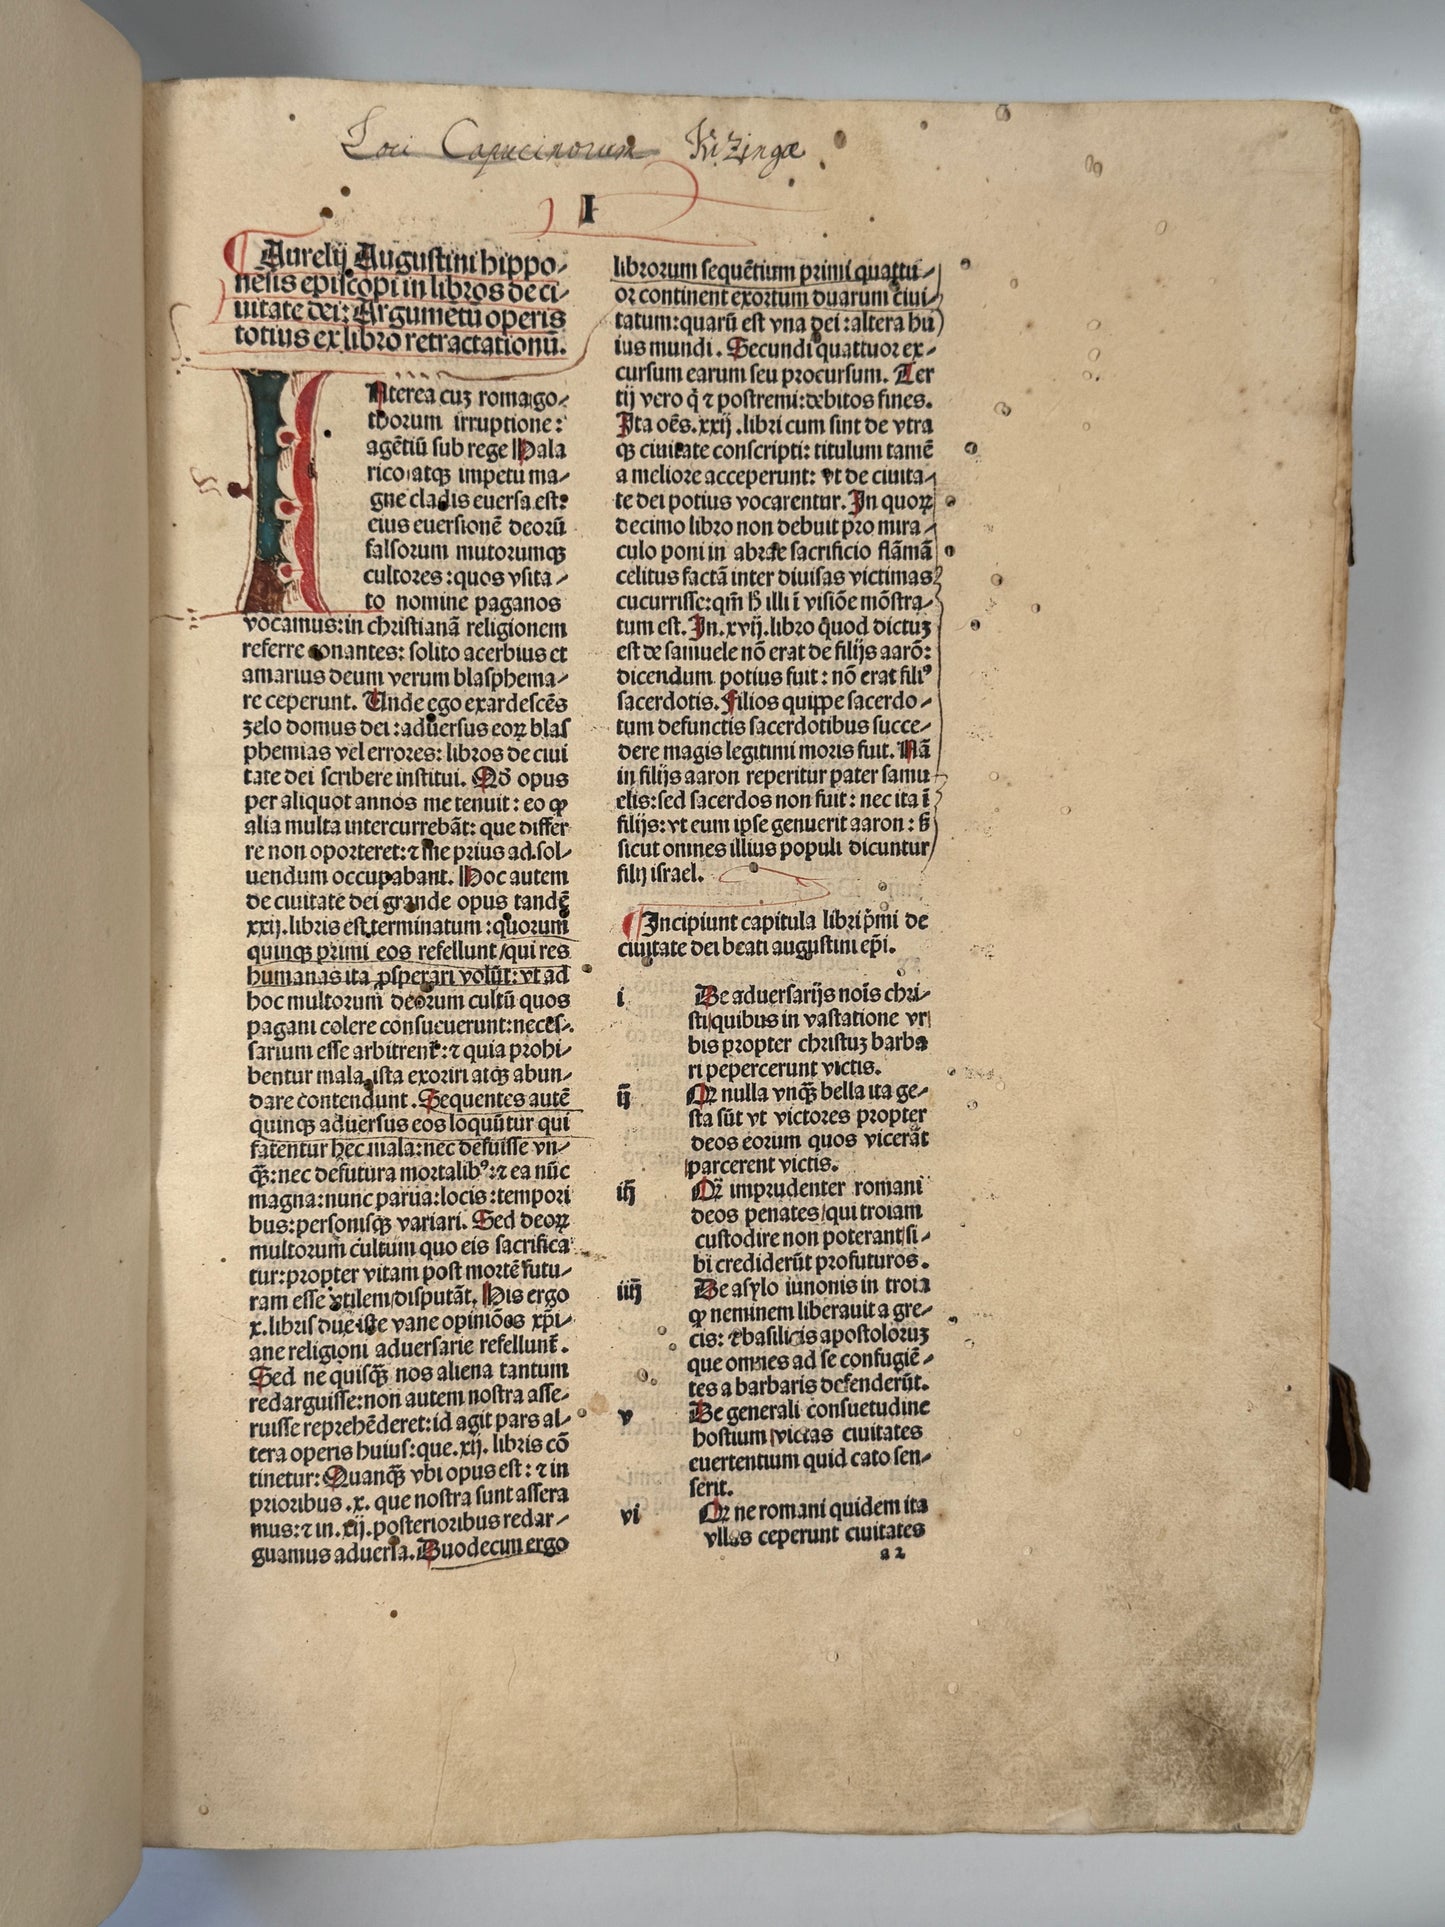 Loci Capucinorum Kizingæ
I
Aurelij Augustini hippo-
nensis episcopi in libros de ci-
uitate dei: Argumētū operis
totius ex libro retractationū.
Interea cuꝫ roma go-
thorum irruptione:
agētiū sub rege Hala
rico: atqꝫ impetu ma-
gne cladis euersa est:
eius euersionē deorū
falsorum mutorumqꝫ
cultores: quos vsita-
to nomine paganos
vocamus: in christianā religionem
referre conantes: solito acerbius et
amarius deum verum blasphema-
re ceperunt. Unde ego exardescēs
zelo domus dei: aduersus eoꝝ blas
phemias vel errores: libros de ciui
tate dei scribere institui. Qd̄ opus
per aliquot annos me tenuit: eo ꝙ
alia multa intercurrebāt: que differ
re non oporteret: ⁊ me prius ad sol-
uendum occupabant. Hoc autem
de ciuitate dei grande opus tandē
xxij. libris est terminatum: quorum
quinqꝫ primi eos refellunt/qui res
humanas ita ꝓsperari volūt: vt ad
hoc multorum deorum cultū quos
pagani colere consueuerunt: neces-
sarium esse arbitrent᷑: ⁊ quia prohi-
bentur mala ista exoriri atqꝫ abun-
dare contendunt. Sequentes autē
quinqꝫ aduersus eos loquūtur qui
fatentur hec mala: nec defuisse vn-
qꝫ̄: nec defutura mortalibꝰ: ⁊ ea nūc
magna: nunc parua: locis: tempori
bus: personisqꝫ variari. Sed deoꝝ
multorum cultum quo eis sacrifica
tur: propter vitam post mortē futu-
ram esse vtilem/disputāt. His ergo
x. libris due iste vane opiniōes xp̄i-
ane religioni aduersarie refellunt᷑.
Sed ne quisqꝫ̄ nos aliena tantum
redarguisse: non autem nostra asse-
ruisse reprehēderet: id agit pars al-
tera operis huius: que .xij. libris cō
tinetur: Quanqꝫ̄ vbi opus est: ⁊ in
prioribus .x. que nostra sunt assera
mus: ⁊ in .xij. posterioribus redar-
guamus aduersa. Duodecim ergo
librorum sequētium primi quattu-
or continent exortum duarum ciui-
tatum: quarū est vna dei: altera hu
ius mundi. Secundi quattuor ex-
cursum earum seu procursum. Ter
tij vero q̄ ⁊ postremi: debitos fines.
Ita oēs .xxij. libri cum sint de vtra
qꝫ ciuitate conscripti: titulum tamē
a meliore acceperunt: vt de ciuita-
te dei potius vocarentur. In quoꝝ
decimo libro non debuit pro mira-
culo poni in abrae sacrificio flāmā
celitus factā inter diuisas victimas
cucurrisse: qm̄ h̄ illi ī visiōe mōstra-
tum est. In .xvij. libro q̄uod dictuꝫ
est de samuele nō erat de filijs aarō:
dicendum potius fuit: nō erat filiꝰ
sacerdotis. Filios quippe sacerdo-
tum defunctis sacerdotibus succe-
dere magis legitimi moris fuit. Nā
in filijs aaron reperitur pater samu
elis: sed sacerdos non fuit: nec ita ī
filijs: vt eum ipse genuerit aaron: s̄
sicut omnes illius populi dicuntur
filij israel.
Incipiunt capitula libri p̄mi de
ciuitate dei beati augustini ep̄i.
i De aduersarijs nois̄ chri-
sti/quibus in vastatione vr
bis propter christuꝫ barba
ri pepercerunt victis.
ij Qꝫ nulla vnqꝫ̄ bella ita ge-
sta sūt vt victores propter
deos eorum quos vicerāt
parcerent victis.
iij Qꝫ imprudenter romani
deos penates/qui troiam
custodire non poterant/si-
bi crediderūt profuturos.
iiij De asylo iunonis in troia
ꝙ neminem liberauit a gre-
cis: ⁊ basilicis apostoloruꝫ
que omnes ad se confugiē-
tes a barbaris defenderūt.
v De generali consuetudine
hostium victas ciuitates
euertentium quid cato sen-
serit.
vi Qꝫ ne romani quidem ita
vllas ceperunt ciuitates
a 2